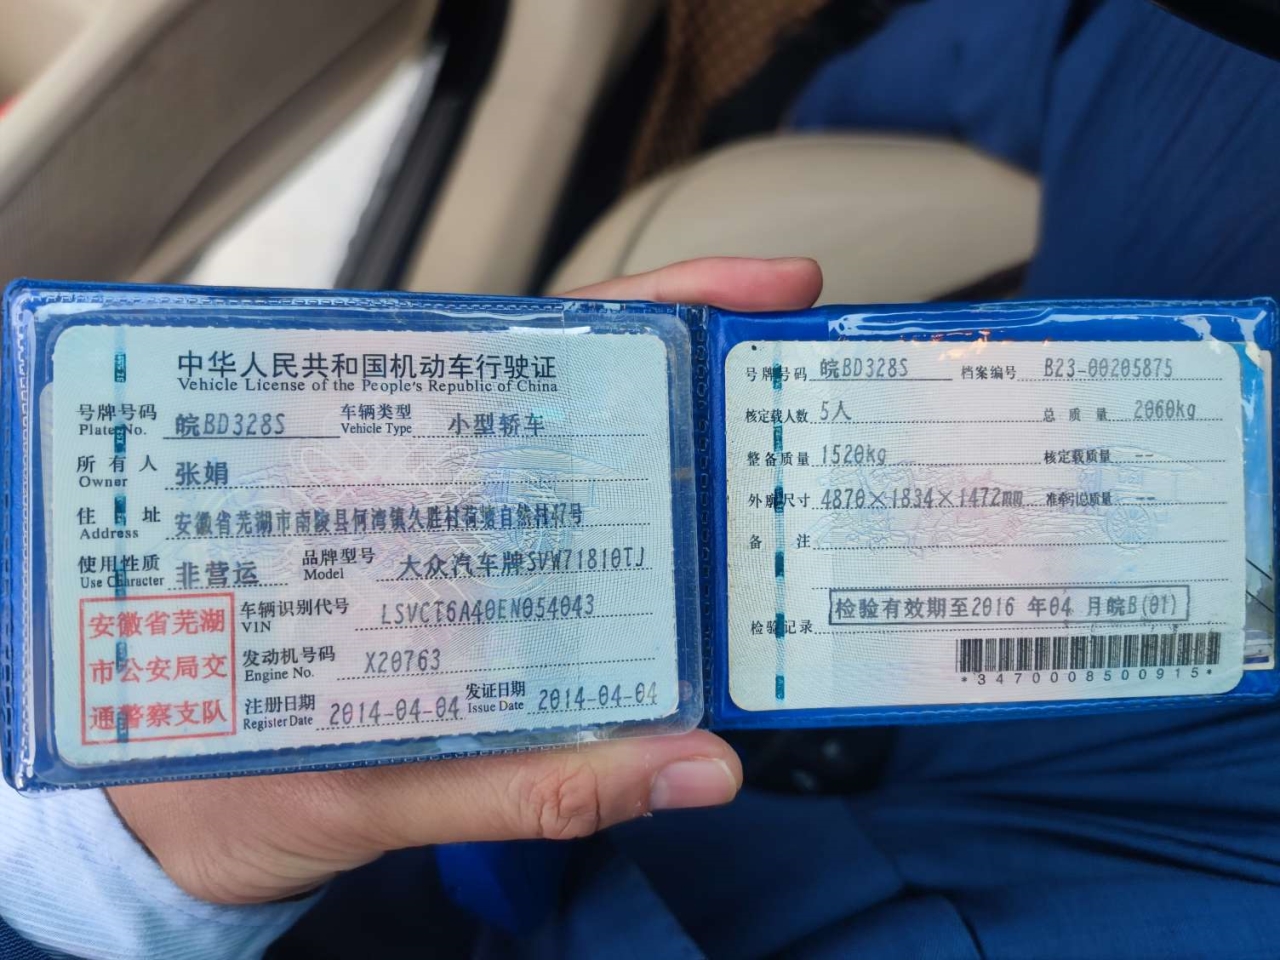 中华人民共和国机动车行驶证
Vehicle License of the People's Republic of China
号牌号码 皖BD328S 车辆类型 小型轿车
Plate No. Vehicle Type
所有人 张娟
Owner
住址 安徽省芜湖市南陵县何湾镇久胜村荷塘自然村47号
Address
使用性质 非营运 品牌型号 大众汽车牌SVW71810TJ
Use Character Model
安徽省芜湖
市公安局交
通警察支队
车辆识别代号 LSVCT6A40EN054043
VIN
发动机号码 X20763
Engine No.
注册日期 2014-04-04 发证日期 2014-04-04
Register Date Issue Date
号牌号码 皖BD328S 档案编号 B23-00205875
核定载人数 5人 总质量 2060kg
整备质量 1520kg 核定载质量 --
外廓尺寸 4870×1834×1472mm 准牵引总质量 --
备注
检验有效期至2016年04月皖B(01)
检验记录
*3470008500915*